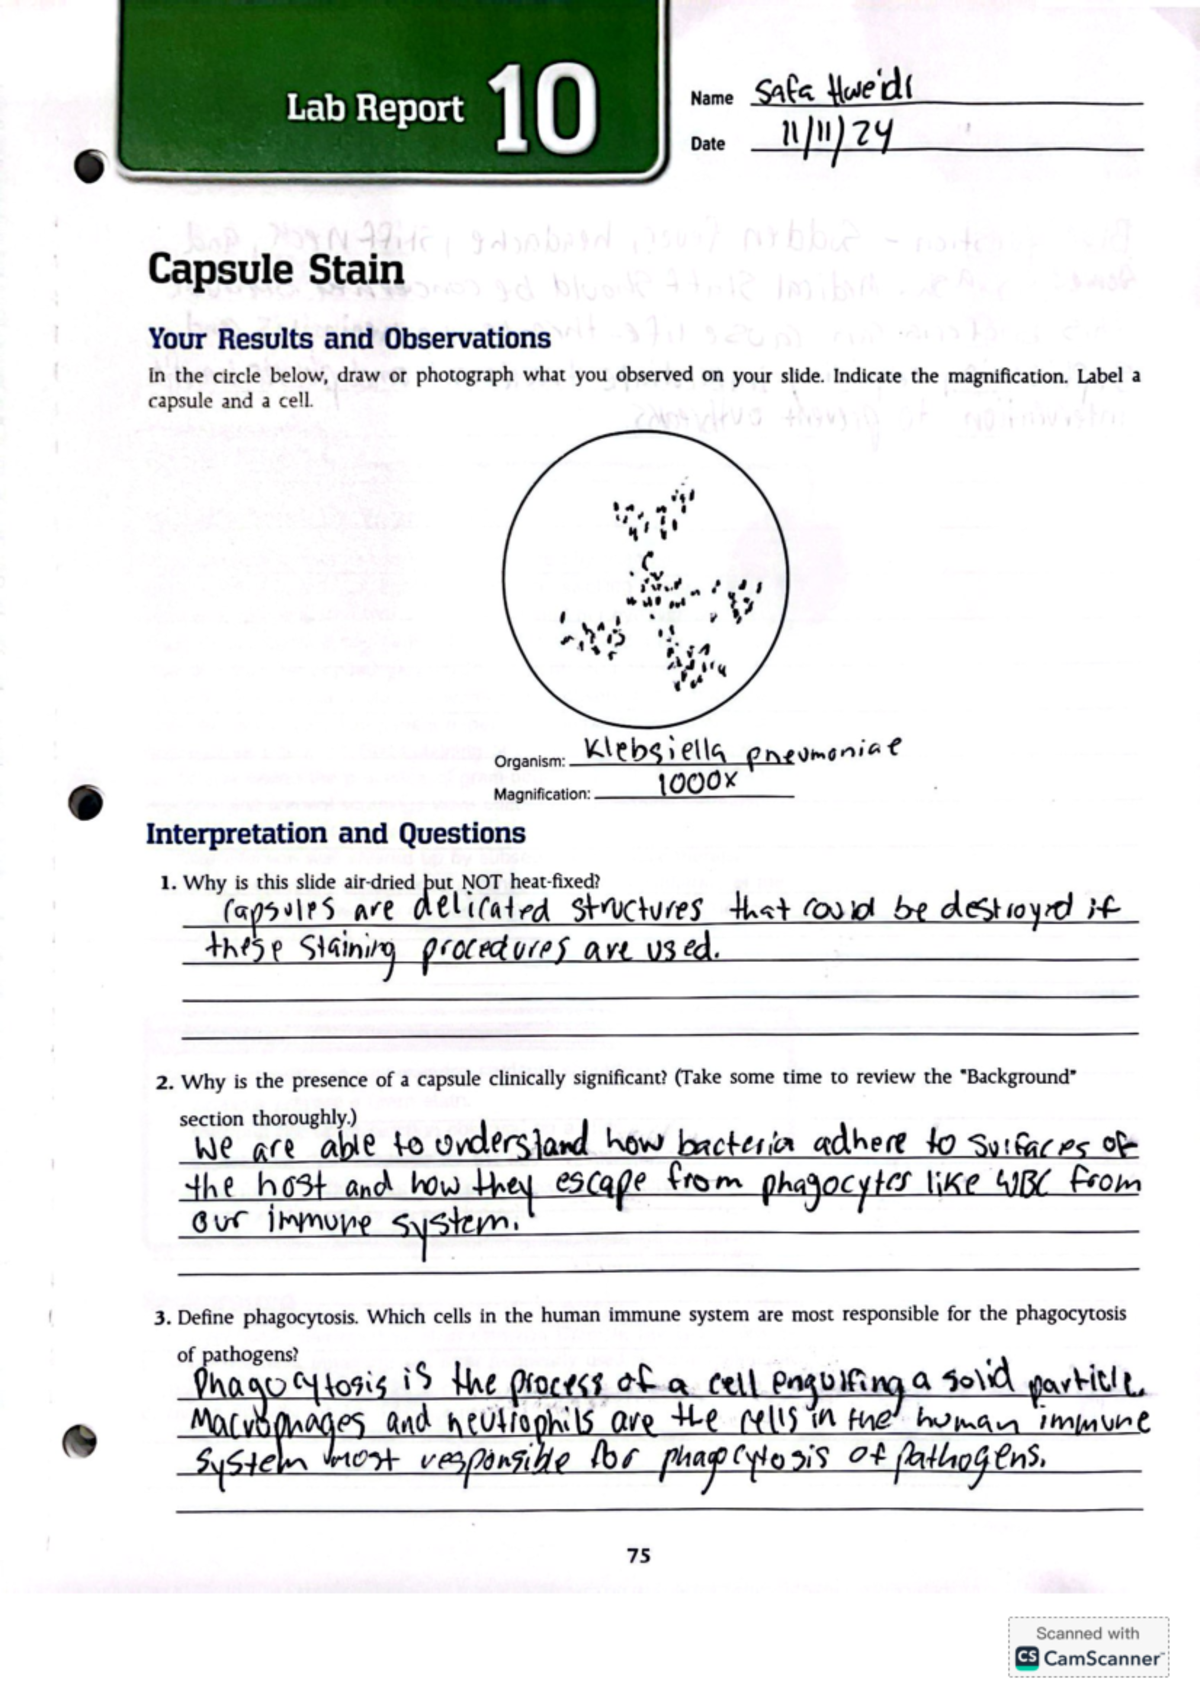 Lab Report 10
Name Safa Hweidi
Date 11/11/24
Capsule Stain
Your Results and Observations
In the circle below, draw or photograph what you observed on your slide. Indicate the magnification. Label a
capsule and a cell.
Organism: Klebsiella pneumoniae
Magnification: 1000x
Interpretation and Questions
1. Why is this slide air-dried but NOT heat-fixed?
Capsules are delicated structures that could be destroyed if
these staining procedures are used.
2. Why is the presence of a capsule clinically significant? (Take some time to review the "Background"
section thoroughly.)
We are able to understand how bacteria adhere to surfaces of
the host and how they escape from phagocytes like WBC from
our immune system.
3. Define phagocytosis. Which cells in the human immune system are most responsible for the phagocytosis
of pathogens?
Phagocytosis is the process of a cell engulfing a solid particle.
Macrophages and neutrophils are the cells in the human immune
system most responsible for phagocytosis of pathogens.
75
Scanned with
CS CamScanner